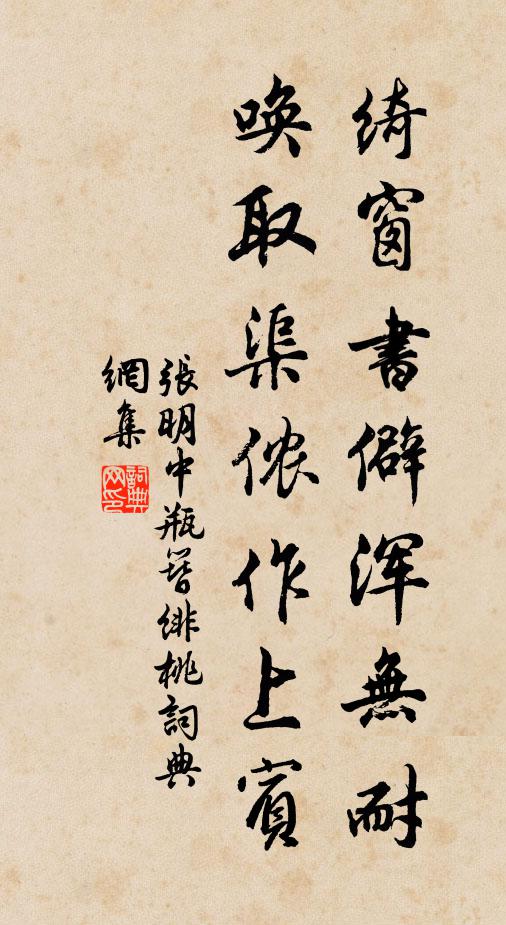 綺窗書僻浑無耐
唤取渠侬作上賓
張明中瓶簪緋桃詞典
網集
詞典
网印